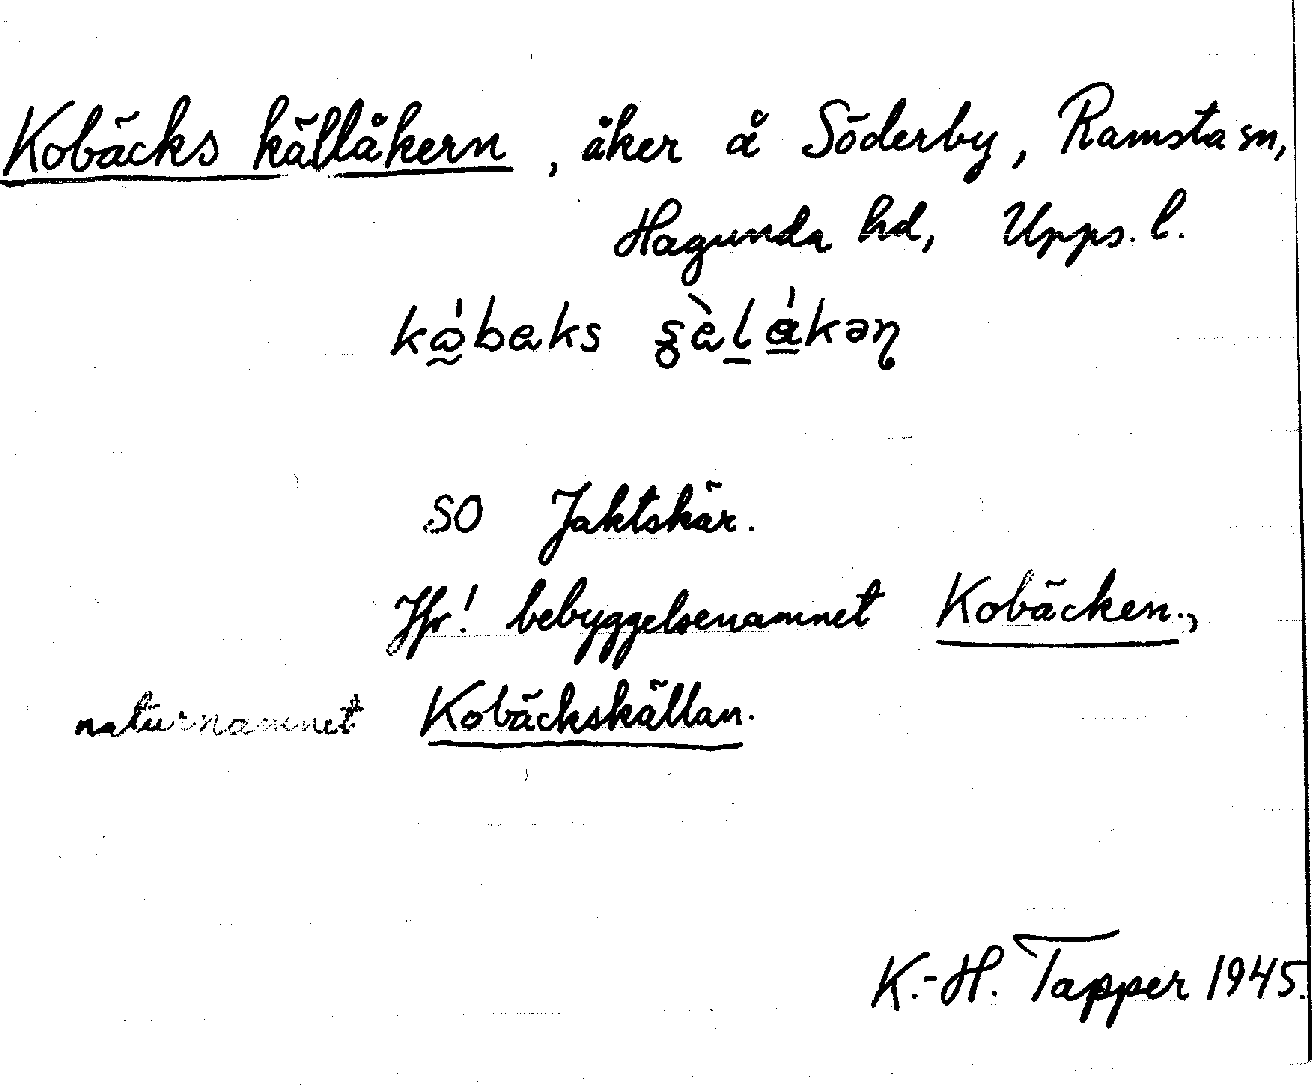 Kobäcks källåkern, åker å Söderby, Ramsta sn,
Hagunda hd, Upps. l.
SO Jaktskär.
Jfr! bebyggelsenamnet Kobäcken.,
naturnamnet Kobäckskällan.
K.-H. Tapper 1945.